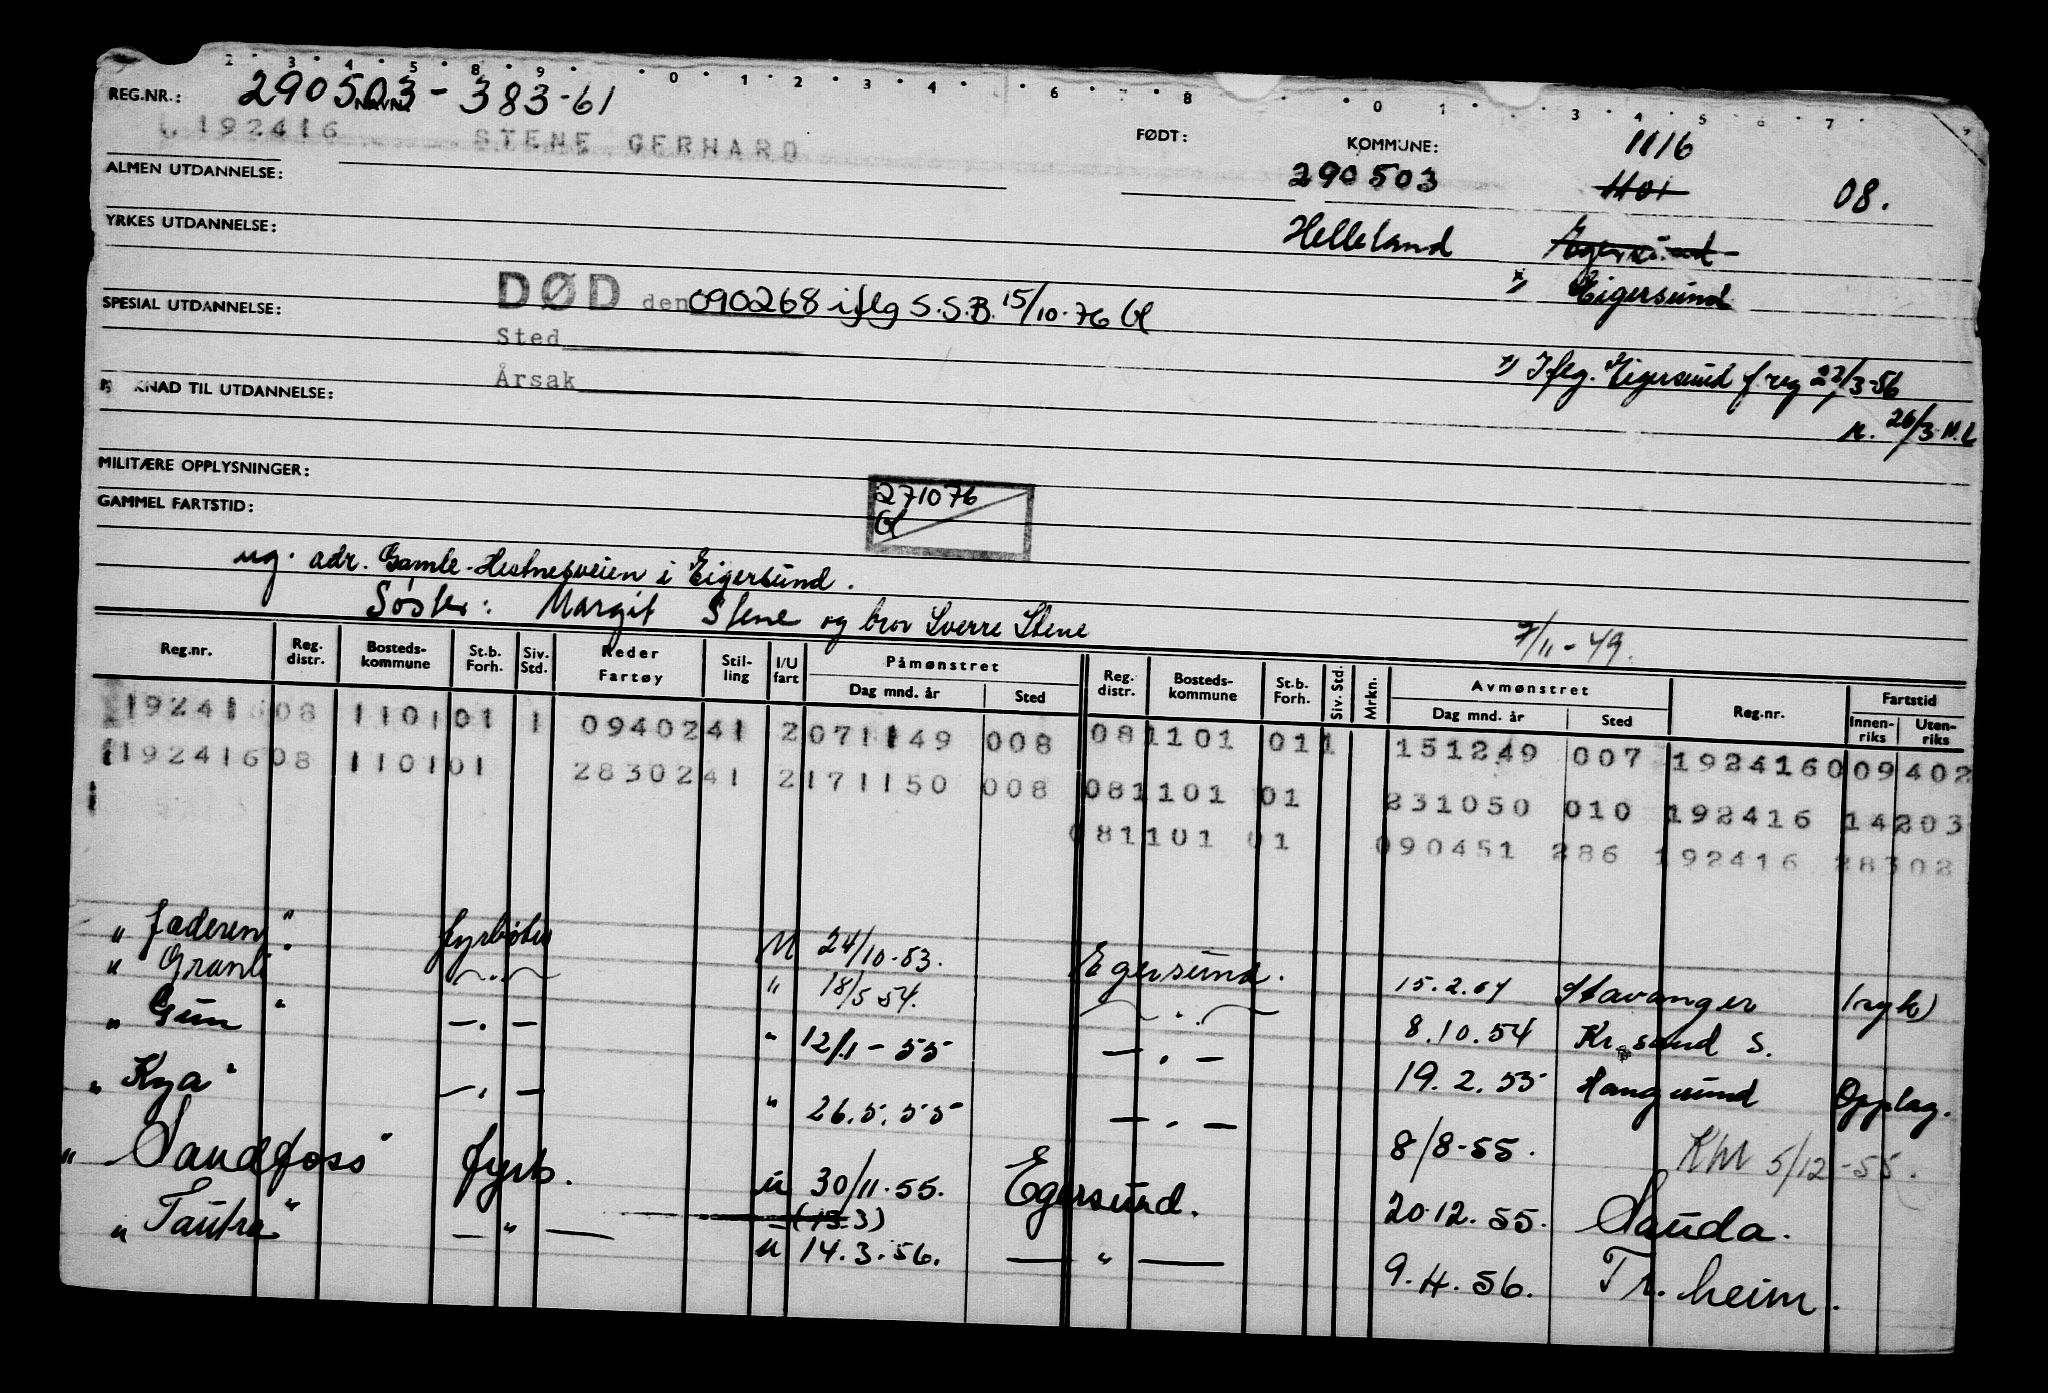 2 . 3 . 4 . 5 . 8 . 9 . . 0 . 1 . 2 . 3 . 4 . . 6 . 7 . 8 . . 0 1 . . 3 . 4 . 5 . 6 . 7 .
REG.NR.: 290503 - 383-61 NAVN:
192416 STENE GERHARD FØDT: KOMMUNE: 1116
ALMEN UTDANNELSE: 290503 1101 08.
YRKES UTDANNELSE: Helleland Egersund
x) Eigersund
SPESIAL UTDANNELSE: DØD den 090268 iflg S.S.B. 15/10-76 Gl
Sted
x) Iflg. Eigersund f.reg 22/3-56
Årsak
KNAD TIL UTDANNELSE: 26/3
MILITÆRE OPPLYSNINGER:
271076
Gl
GAMMEL FARTSTID:
ug. adr. Gamle-Hestnesveien i Eigersund.
Søster: Margit Stene og bror Sverre Stene 7/11-49.
Reg.nr. Reg. distr. Bosteds- kommune St.b. Forh. Siv. Std. Reder Fartøy Stil- ling I/U fart Påmønstret Dag mnd. år Sted Reg. distr. Bosteds- kommune St.b. Forh. Siv. Std. Mrkn. Avmønstret Dag mnd. år Sted Reg.nr. Fartstid Innen- riks Uten- riks
192416 08 1101 01 1 0940241 2 071149 008 08 1101 01 1 151249 007 1924160 09402
192416 08 1101 01 2830241 2 171150 008 08 1101 01 231050 010 192416 14203
08 1101 01 090451 286 192416 28302
" Jæderen " fyrbøter U 24/10-53. Egersund. 15.2.54 Stavanger (syk)
" Granli " —.— " 18/5 54. —.— 8.10.54 Kr.sand S.
" Gun " —.— " 12/1-55 —.— 19.2.55 Haugesund Opplag.
" Kya " —.— " 26.5.55 —.— 8/8-55. KM 5/12-55.
" Sandfoss " fyrb. u 30/11.55. Egersund. 20.12.55. Sauda.
(13.3)
" Tautra " —"— u 14.3.56. —"— 9.4.56. Tr.heim.